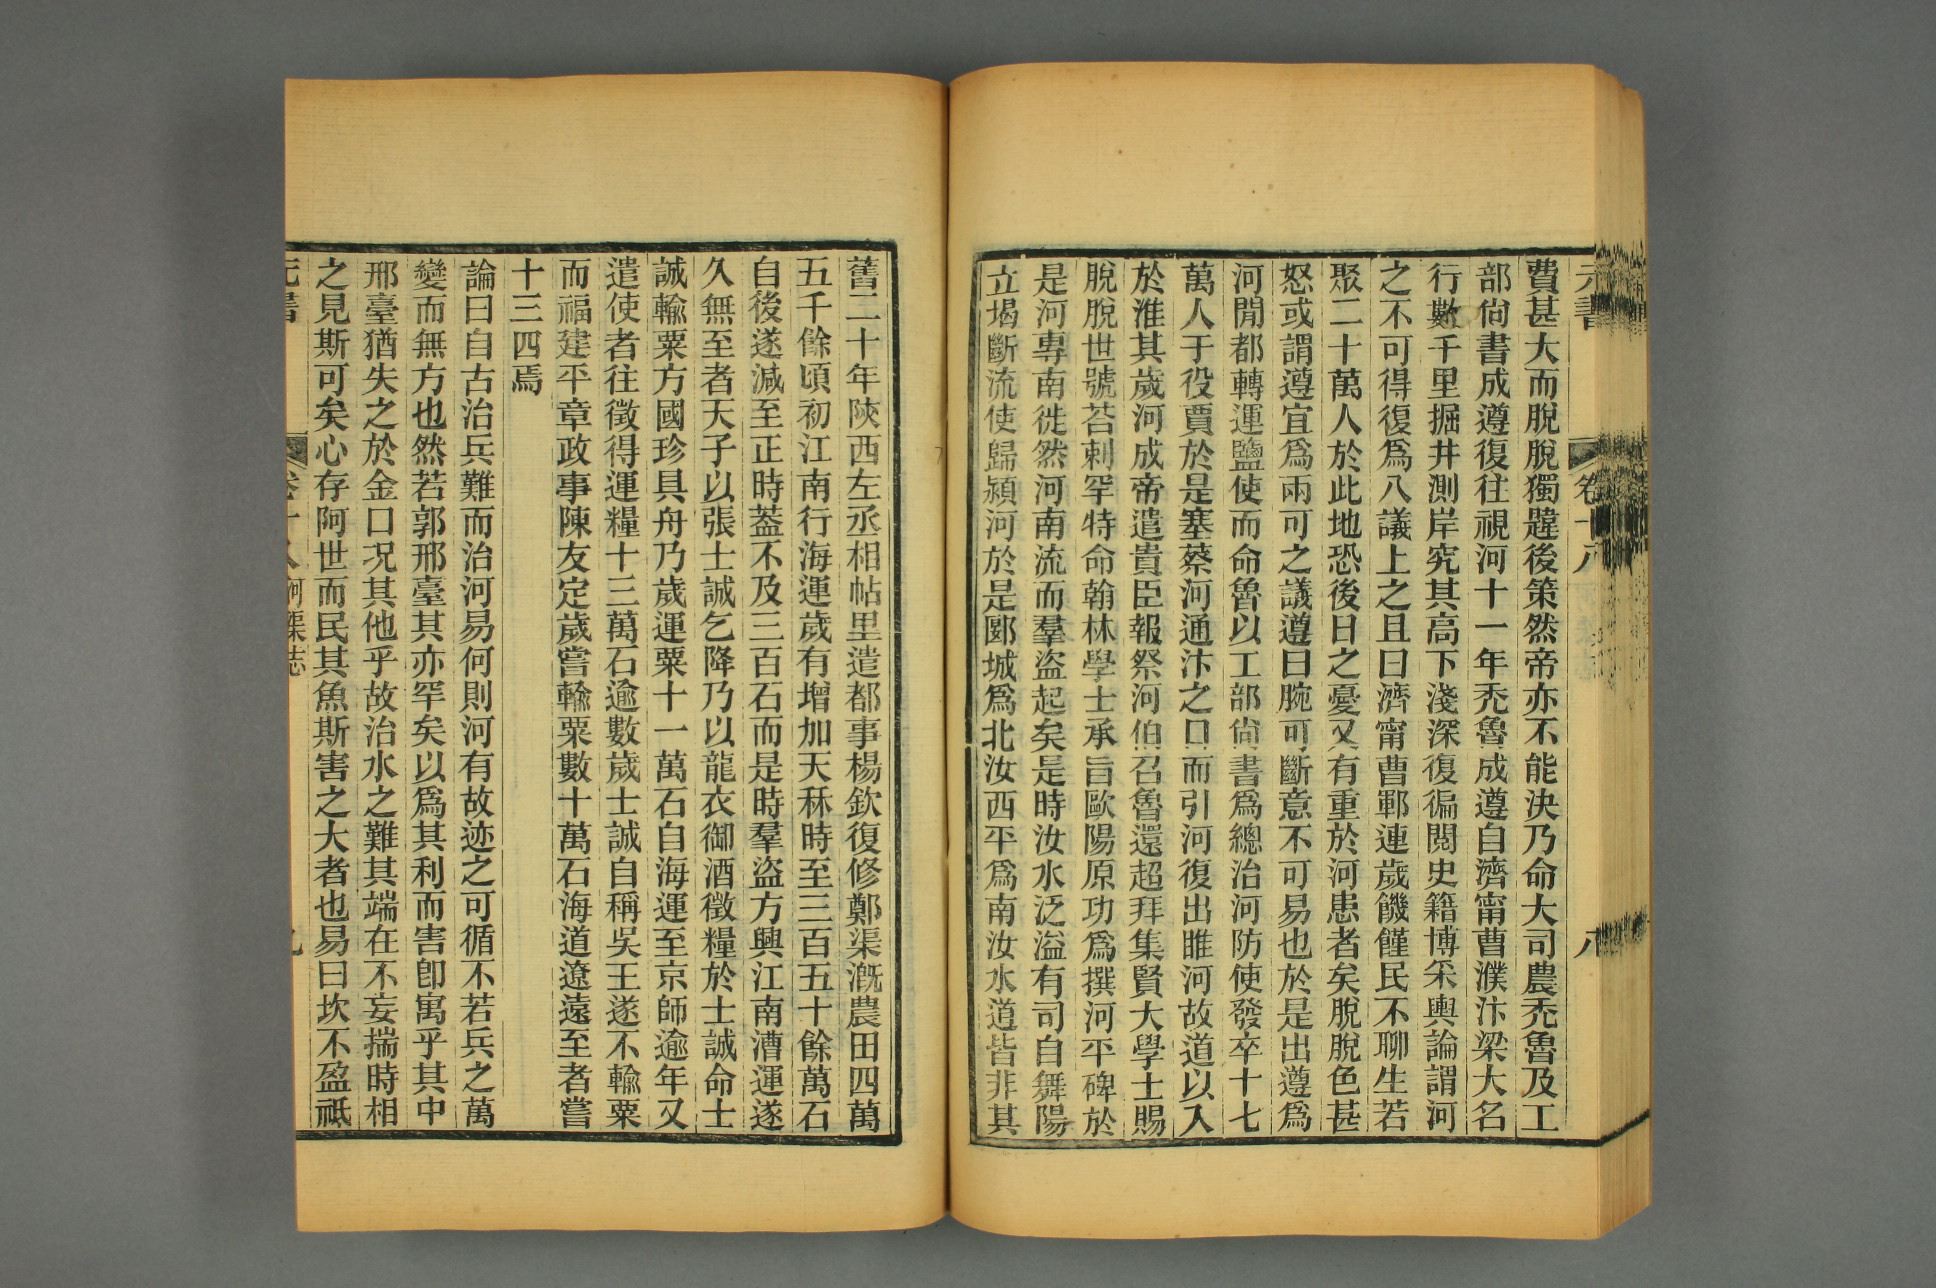 元書 卷十八 八
費甚大而脫脫獨韙後策然帝亦不能決乃命大司農禿魯及工
部尙書成遵復往視河十一年禿魯成遵自濟甯曹濮汴梁大名
行數千里掘井測岸究其高下淺深復徧閱史籍博采輿論謂河
之不可得復爲八議上之且曰濟甯曹鄆連歲饑饉民不聊生若
聚二十萬人於此地恐後日之憂又有重於河患者矣脫脫色甚
怒或謂遵宜爲兩可之議遵曰腕可斷意不可易也於是出遵爲
河閒都轉運鹽使而命魯以工部尙書爲總治河防使發卒十七
萬人于役賈於是塞蔡河通汴之口而引河復出睢河故道以入
於淮其歲河成帝遣貴臣報祭河伯召魯還超拜集賢大學士賜
脫脫世號荅剌罕特命翰林學士承旨歐陽原功爲撰河平碑於
是河專南徙然河南流而羣盜起矣是時汝水泛溢有司自舞陽
立堨斷流使歸潁河於是郾城爲北汝西平爲南汝水道皆非其
舊二十年陝西左丞相帖里遣都事楊欽復修鄭渠漑農田四萬
五千餘頃初江南行海運歲有增加天秝時至三百五十餘萬石
自後遂減至正時葢不及三百石而是時羣盜方興江南漕運遂
久無至者天子以張士誠乞降乃以龍衣御酒徵糧於士誠命士
誠輸粟方國珍具舟乃歲運粟十一萬石自海運至京師逾年又
遣使者往徵得運糧十三萬石逾數歲士誠自稱吳王遂不輸粟
而福建平章政事陳友定歲嘗輸粟數十萬石海道遼遠至者嘗
十三四焉
論曰自古治兵難而治河易何則河有故迹之可循不若兵之萬
變而無方也然若郭邢臺其亦罕矣以爲其利而害卽寓乎其中
邢臺猶失之於金口况其他乎故治水之難其端在不妄揣時相
之見斯可矣心存阿世而民其魚斯害之大者也易曰坎不盈祗
元書 卷十八 河渠志 九